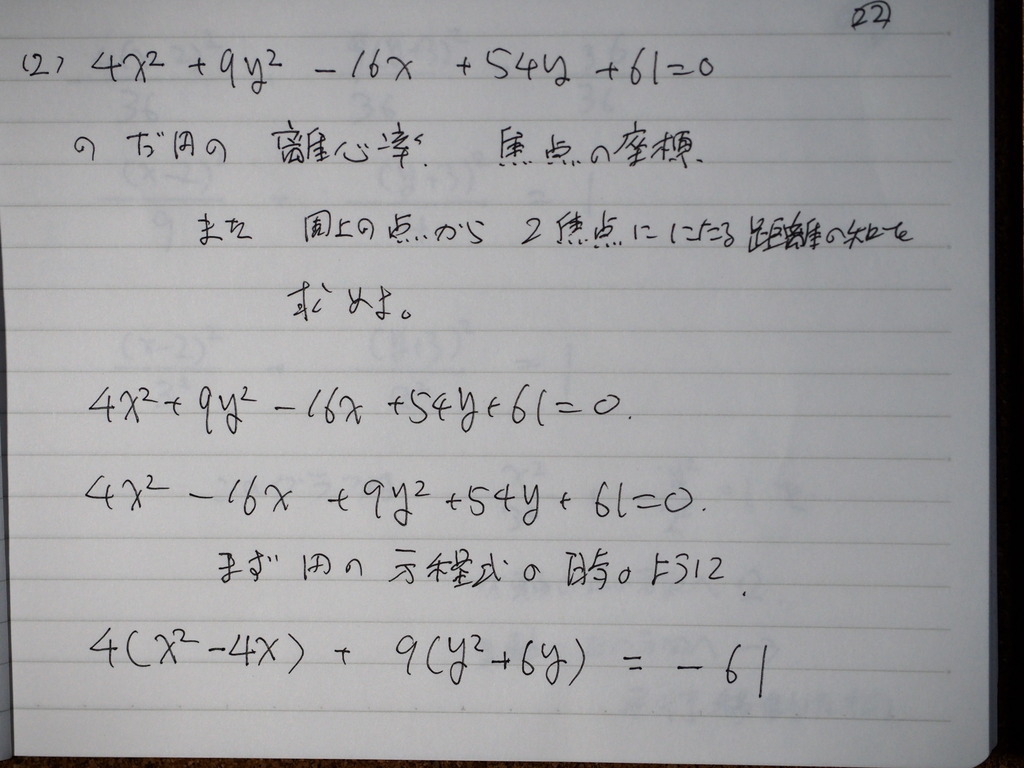 22
(2) 4x² + 9y² - 16x + 54y + 61 = 0
の だ円の 離心率、 焦点の座標、
また 周上の点から 2焦点に にたる 距離の和を
求めよ。
4x² + 9y² - 16x + 54y + 61 = 0.
4x² - 16x + 9y² + 54y + 61 = 0.
まず 円の 方程式の 時のように、
4(x² - 4x) + 9(y² + 6y) = - 61